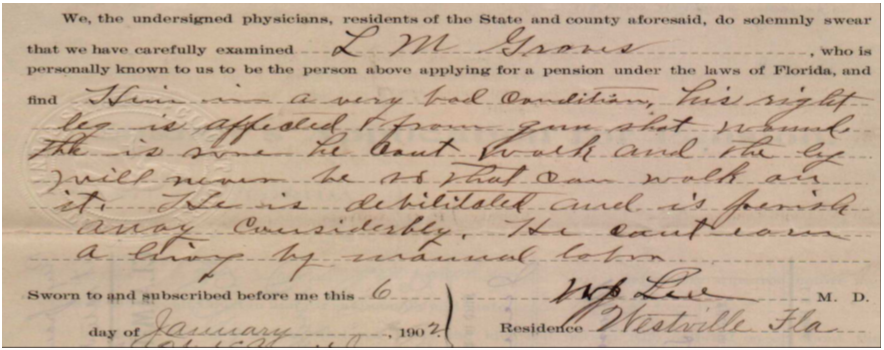 We, the undersigned physicians, residents of the State and county aforesaid, do solemnly swear
that we have carefully examined L M Groves , who is
personally known to us to be the person above applying for a pension under the laws of Florida, and
find Him in a very bad condition, his right
leg is affected & from gun shot wound
the is sore he cant work and the leg
will never be so that can walk on
it. He is debilitated and is perish
away considerbly. He cant earn
a living by manual labor
Sworn to and subscribed before me this 6
day of January , 1902
WJ Lee M. D.
Residence Westville Fla